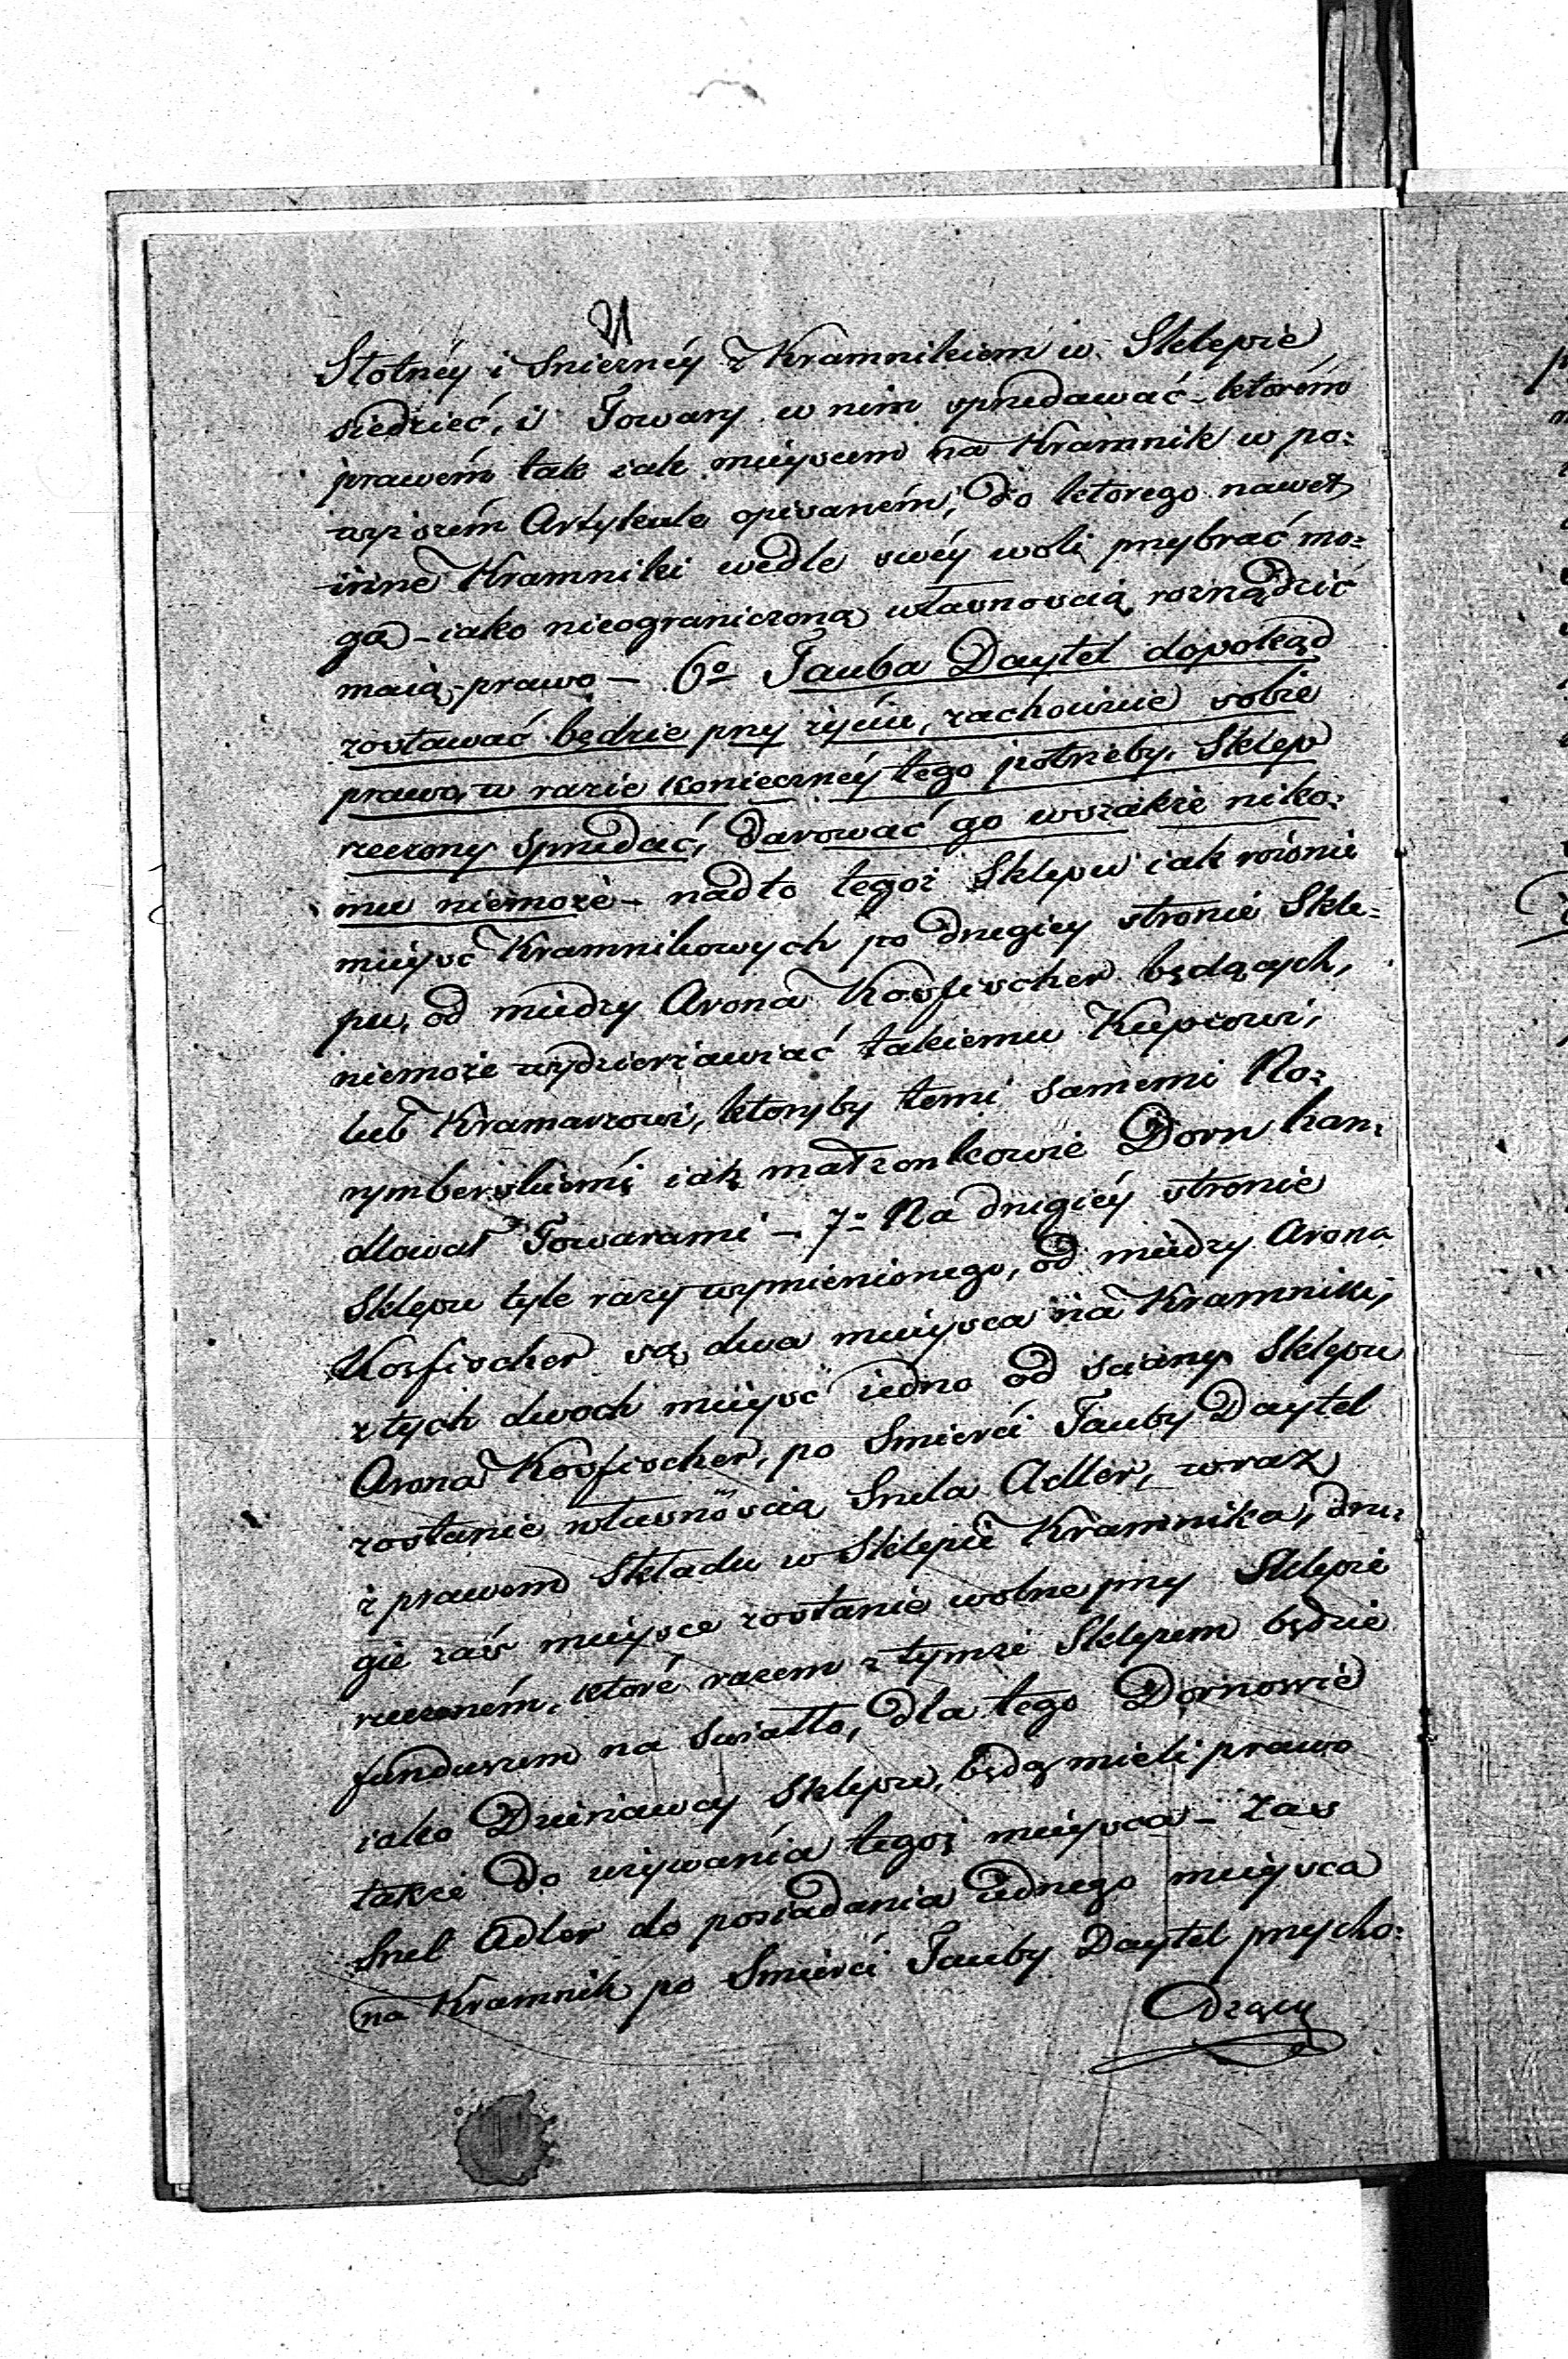 Słotnéy i Snieznéy z Kramnikiem w Sklepie
siedzieć, i Towary w nim sprzedawać - którém
prawem tak iak mieyscem na Kramnik w po=
wyzszém Artykule opisaném, do ktorego nawet
inne Kramniki wedle swéy woli przybrać mo=
gą - iako nieograniczoną własnoscią rozrządzić
maią prawo - 6o Tauba Daytel dopokąd
zostawać będzie przy zyciu, zachowuie sobie
prawo, w razie koniecznéy tego potrzeby, Sklep
rzeczony sprzedać, darować go wszakze niko=
mu niemoze - nadto tegoz Sklepu iak rownie
mieysc Kramnikowych po drugiey stronie Skle=
pu, od miedzy Arona Kosfischer będących,
niemoze wydzierzawiać takiemu Kupcowi,
lub Kramarzowi, ktoryby temi samemi No=
rymberskiemi iak małzonkowie Dorn han=
dlował Towarami - 7o Na drugiéy stronie
Sklepu tyle razy wymienionego, od miedzy Arona
Kosfischer są dwa mieysca na Kramniki,
z tych dwoch mieysc iedno od sciany Sklepu
Arona Kosfischer, po Smierci Tauby Daytel
zostanie własnoscią Snela Adler, wraz
z prawem Składu w Sklepie Kramnika, dru=
gie zaś mieysce zostanie wolne przy Sklepie
rzeczoném, które razem z tymze Sklepem będzie
funduszem na Swiatło, dla tego Dornowie
iako Dzierzawcy Sklepu, będą mieli prawo
takze do uzywania tegoz mieysca - Zas
Snel Adler do posiadania iednego mieysca
na Kramnik po Smierci Tauby Daytel przycho=
dzący